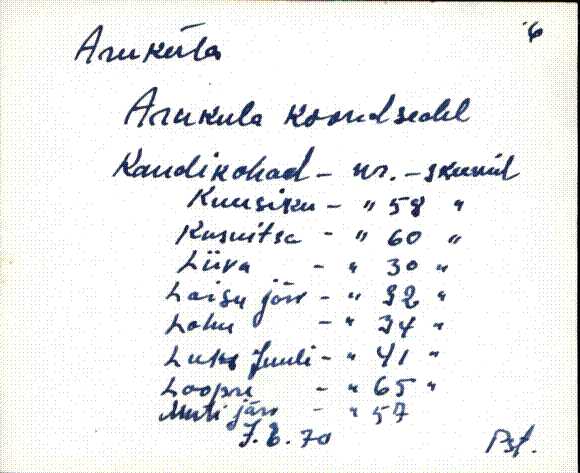 Aruküla 6
Aruküla koondsedel
Kandikohad - nr. - skeemil
Kuusiku - " 58 "
Kusnitsa - " 60 "
Liiva - " 30 "
Laisu järv - " 32 "
Lohu - " 34 "
Luks Juuli - " 41 "
Loopre - " 65 "
Muti järv - " 57
7.6.70 Pst.